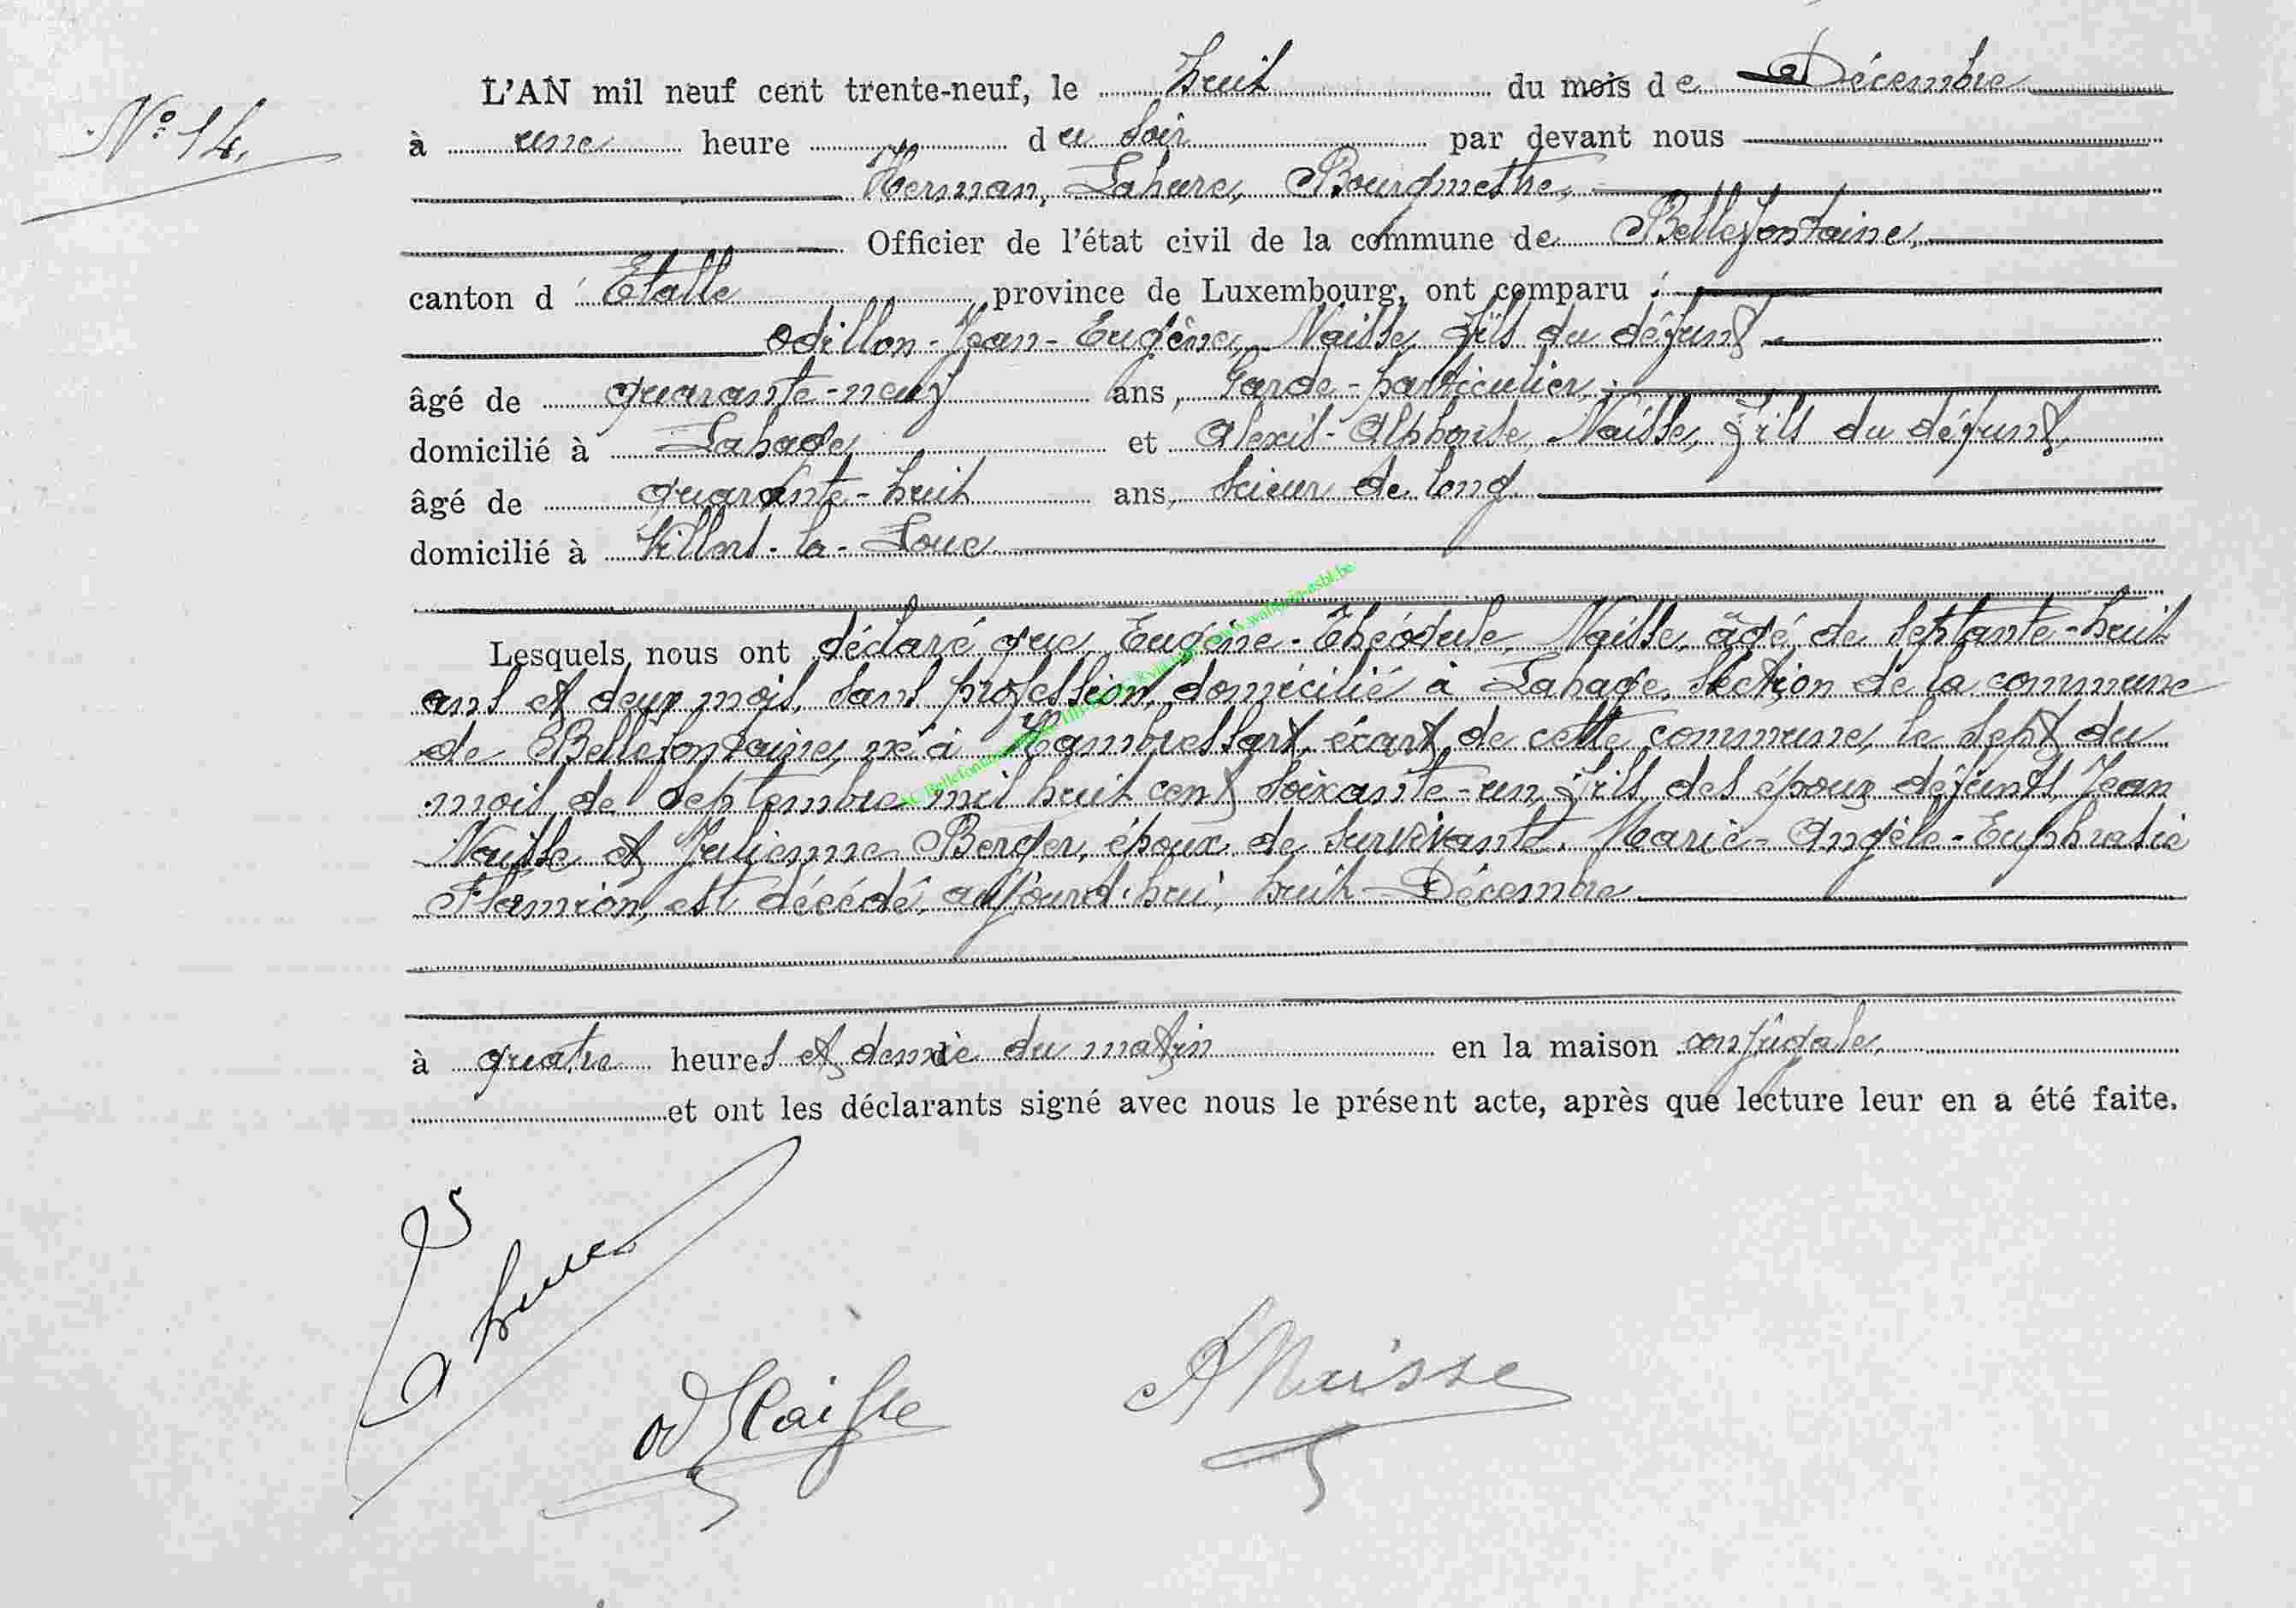 N° 14.
L'AN mil neuf cent trente-neuf, le huit du mois de Décembre
à une heure du soir par devant nous
Herman, Lahure, Bourgmestre,
Officier de l'état civil de la commune de Bellefontaine,
canton d'Etalle province de Luxembourg, ont comparu :
Odillon-Jean-Eugène, Naisse, fils du défunt
âgé de quarante-neuf ans, Garde-particulier,
domicilié à Lahage et Alexis-Alphonse Naisse, fils du défunt,
âgé de quarante-huit ans, scieur de long
domicilié à Villers-la-Loue
Lesquels nous ont déclaré que Eugène-Théodule, Naisse, âgé de septante-huit
ans et deux mois, sans profession, domicilié à Lahage, section de la commune
de Bellefontaine, né à Hambressart, écart de cette commune, le sept du
mois de septembre mil huit cent soixante-un, fils des époux défunts, Jean
Naisse et Julienne Berger, époux de survivante, Marie-Angèle-Euphrasie
Flamion, est décédé, aujourd'hui, huit Décembre
à quatre heures et demie du matin en la maison conjugale,
et ont les déclarants signé avec nous le présent acte, après que lecture leur en a été faite.
Lahure
Od Naisse
A Naisse